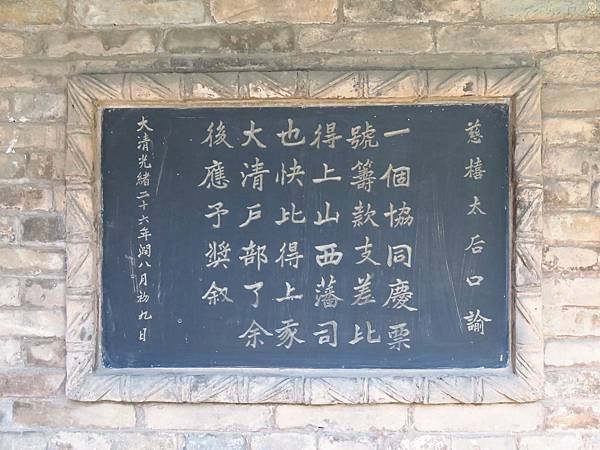 慈禧太后口諭
一個協同慶票
號籌款支差比
得上山西藩司
也快比得上豖
大清戶部了余
後應予獎叙
大清光緒二十六年潤八月初九日